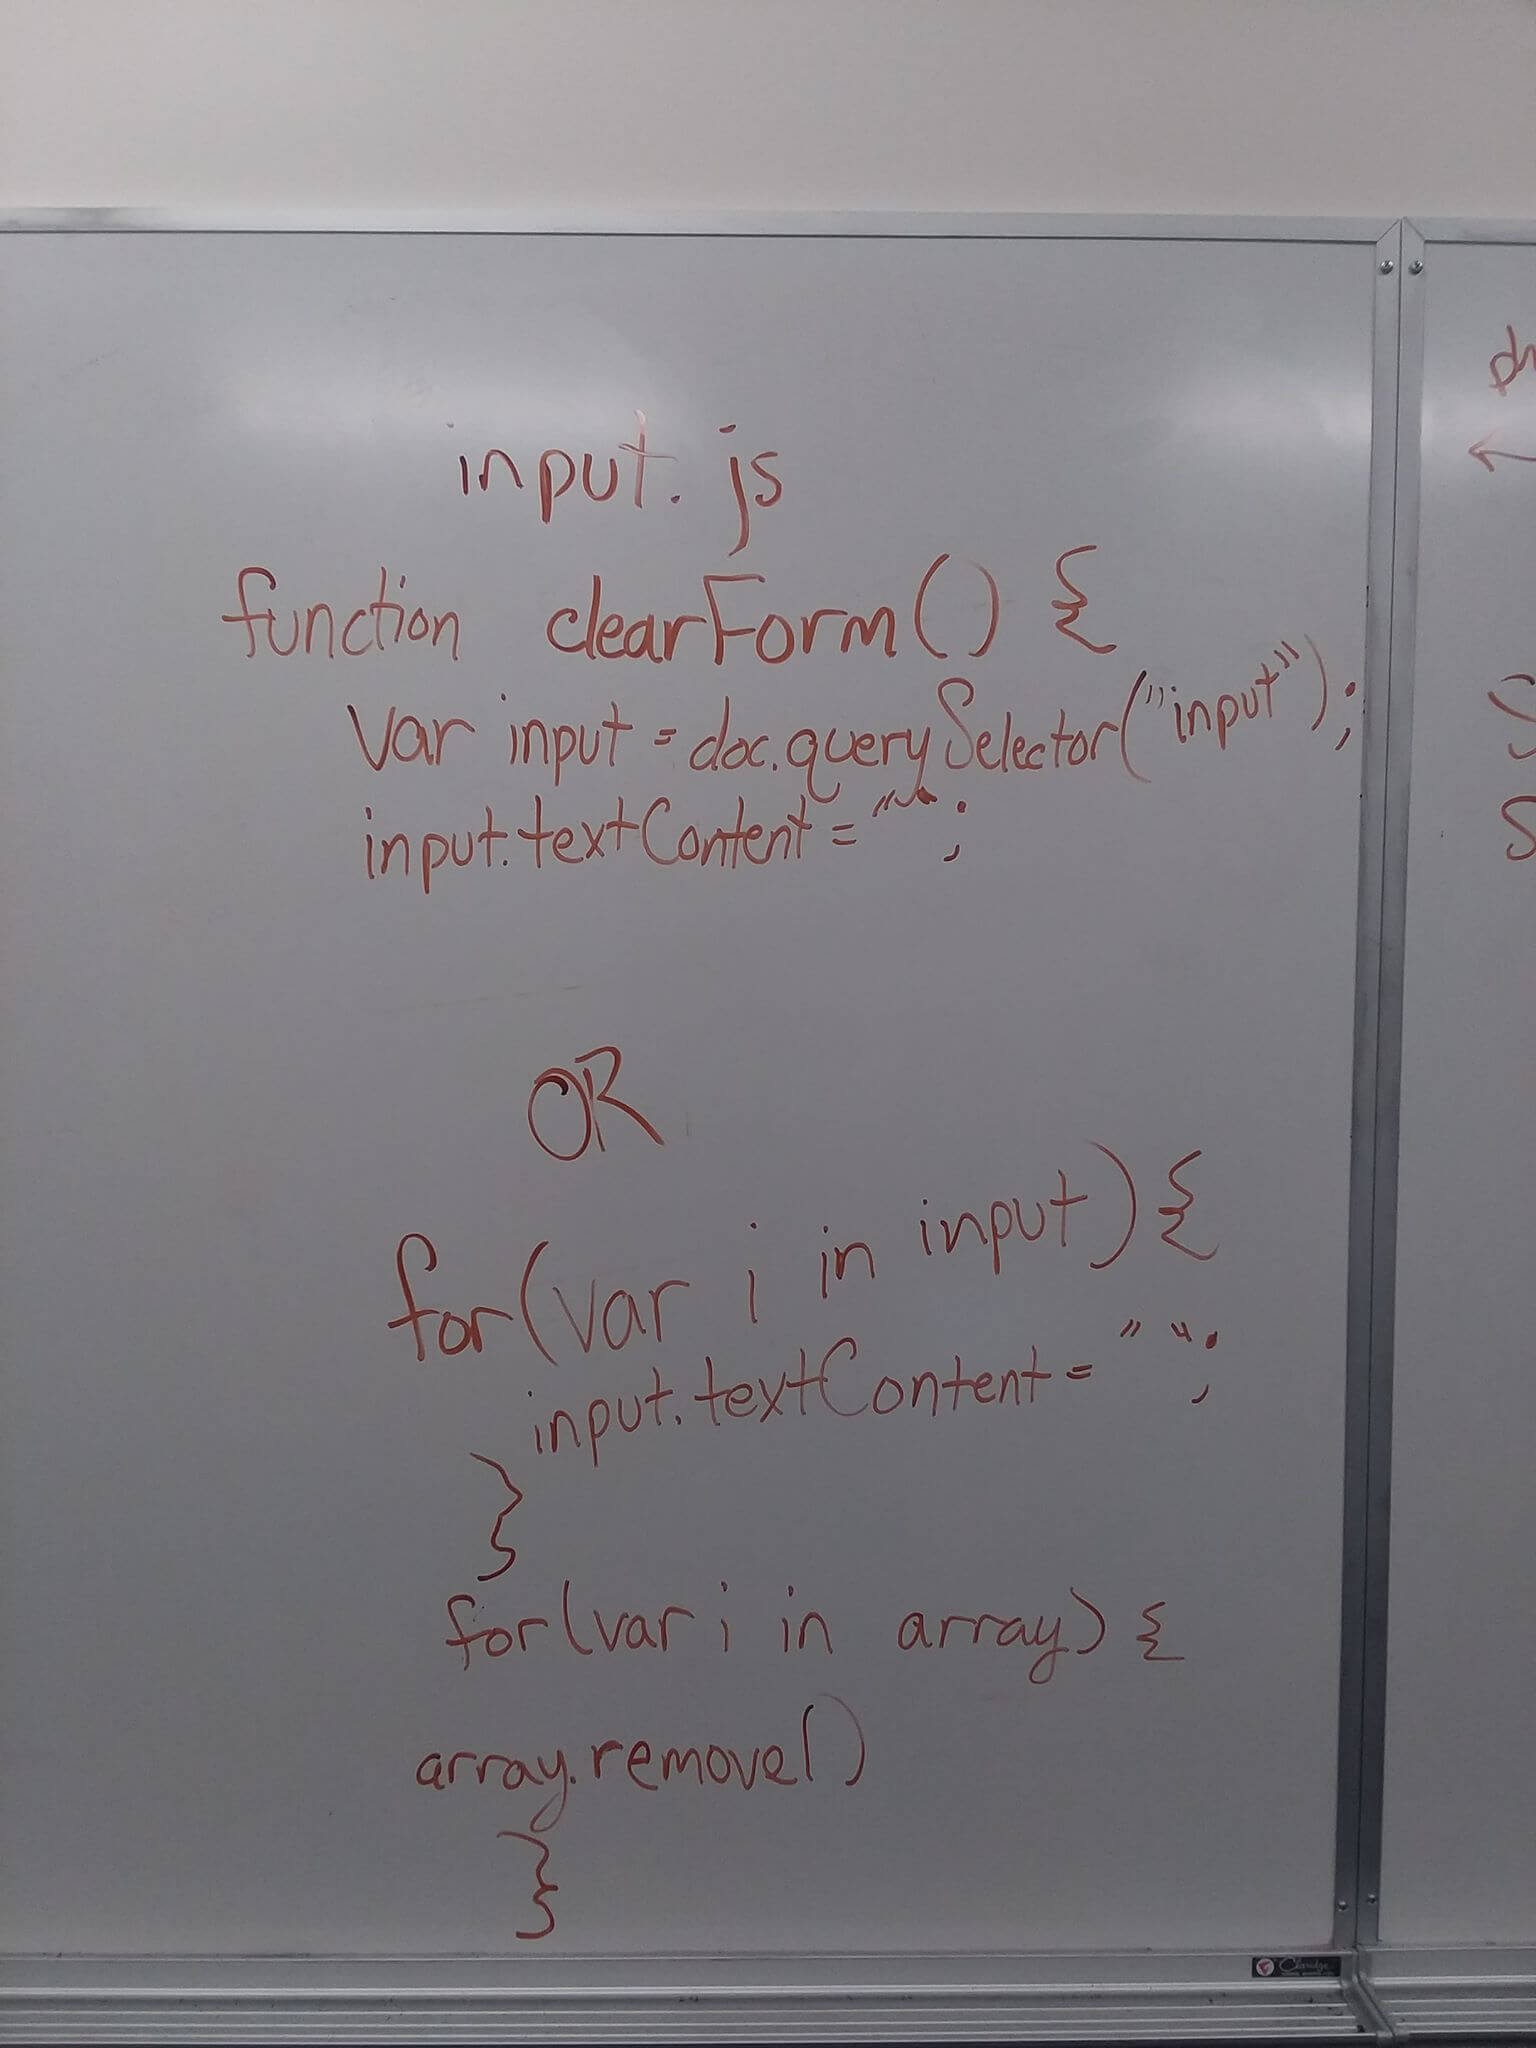 input.js
function clearForm() {
var input = doc.querySelector("input");
input.textContent = "";
OR
for(var i in input) {
input.textContent = " ";
}
for(var i in array) {
array.remove()
}
Claridge